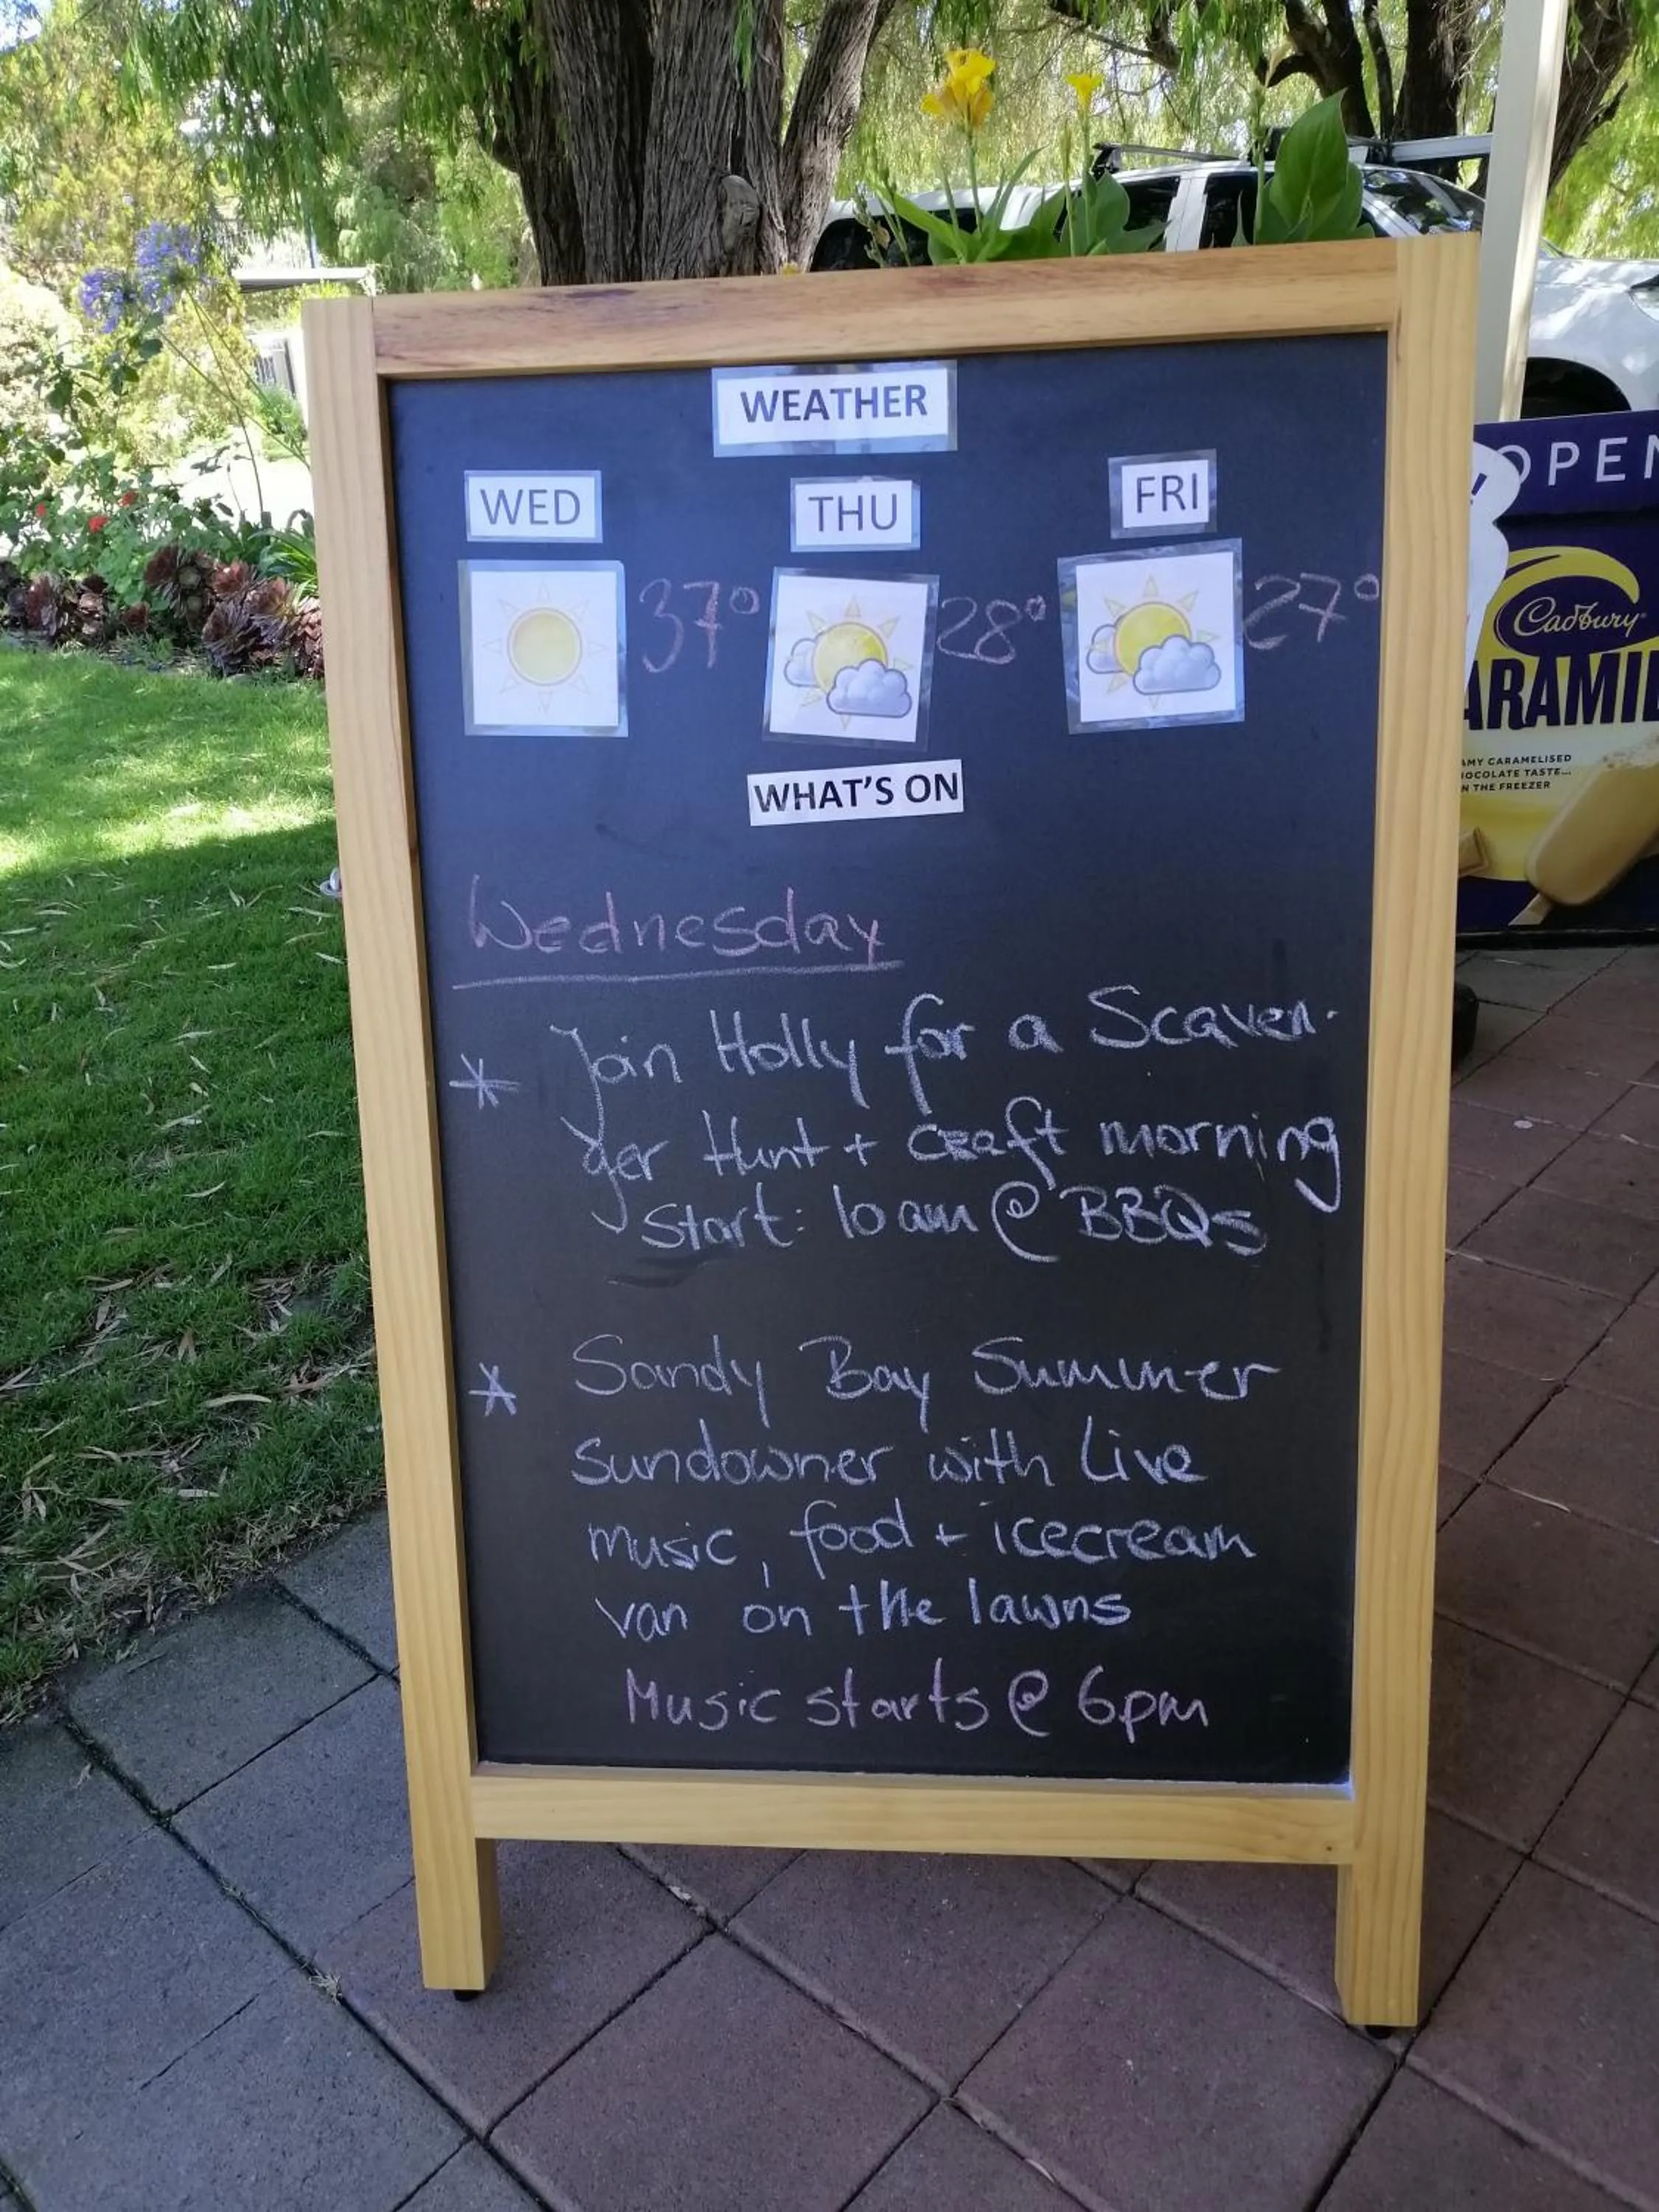 WEATHER
WED THU FRI
37° 28° 27°
WHAT'S ON
Wednesday
* Join Holly for a Scaven-
ger Hunt + craft morning
Start: 10am @ BBQs
* Sandy Bay Summer
sundowner with Live
music, food + icecream
van on the lawns
Music starts @ 6pm
OPEN
Cadbury
ARAMIL
AMY CARAMELISED
OCOLATE TASTE...
N THE FREEZER